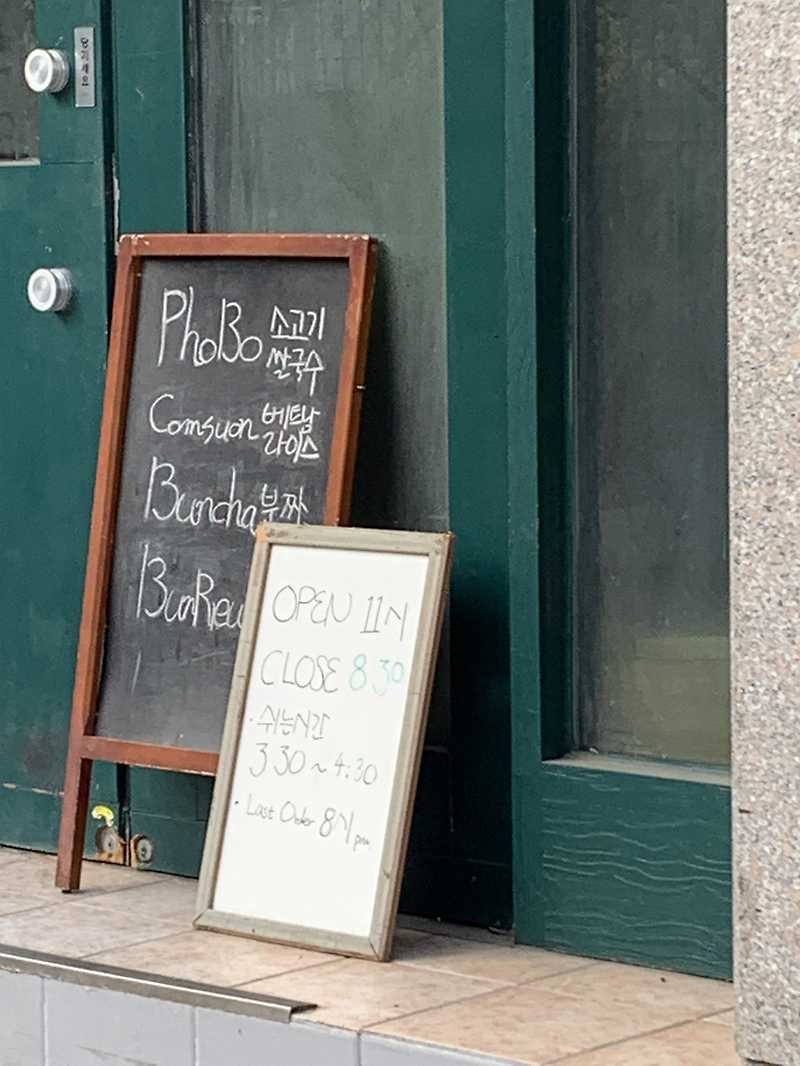 당기세요
PhoBo 소고기
쌀국수
Comsuon 베트남
라이스
Buncha 분짜
BunRieu
OPEN 11시
CLOSE 8 30
· 쉬는시간
3 30 ~ 4:30
· Last Order 8시 pm